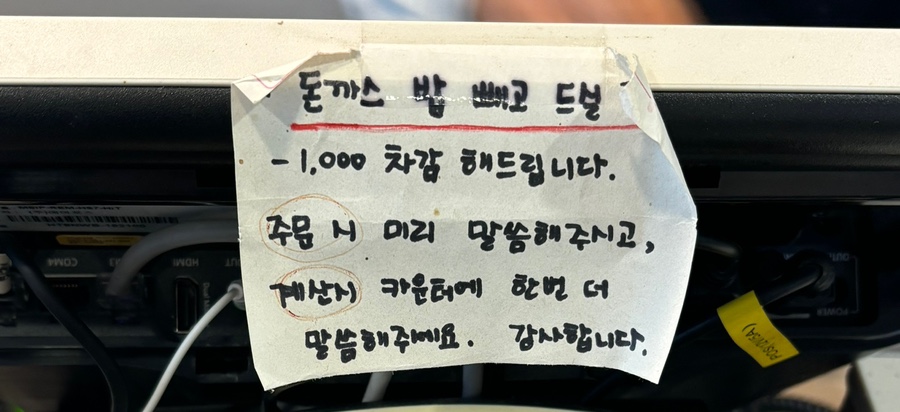 돈까스 밥 빼고 드실
-1,000 차감 해드립니다.
주문 시 미리 말씀해주시고,
계산시 카운터에 한번 더
말씀해주세요. 감사합니다.
COM4
HDMI
POWER